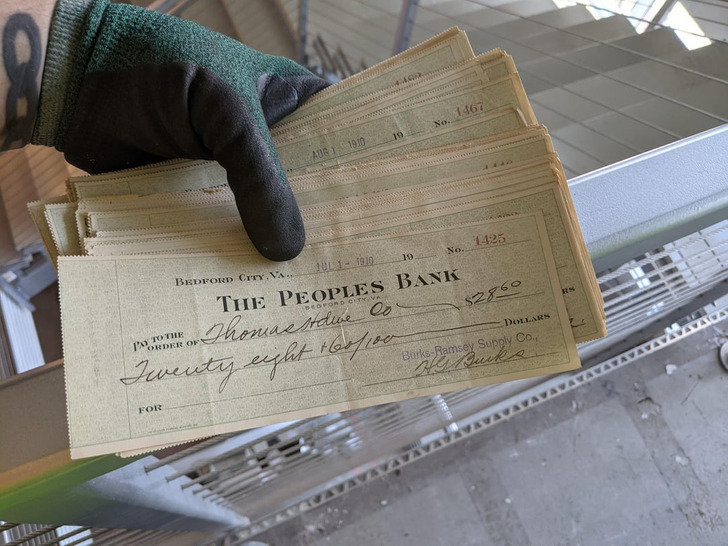 8
1467
No.
AUG 1 1910 19
JUL 1 - 1910 19 No. 1425
BEDFORD CITY, VA.,
THE PEOPLES BANK
BEDFORD CITY, VA.
PAY TO THE ORDER OF Thomas Hdwe Co $28 60
Twenty eight + 60/100 DOLLARS
Burks-Ramsey Supply Co.,
FOR